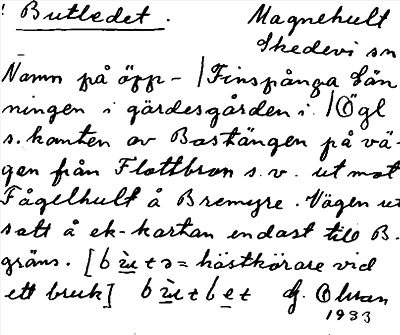 ! Butledet. Magnehult
Skedevi sn
Namn på öpp- | Finspånga län
ningen i gärdesgården i | Ögl
s. kanten av Bastängen på vä-
gen från Flottbron s.v. ut mot
Fågelhult å Bremyre. Vägen ut
satt å ek-kartan endast till B.
gräns. [bù̲tə = hästkörare vid
ett bruk] bù̲tbe̲t G. Olsson
1933